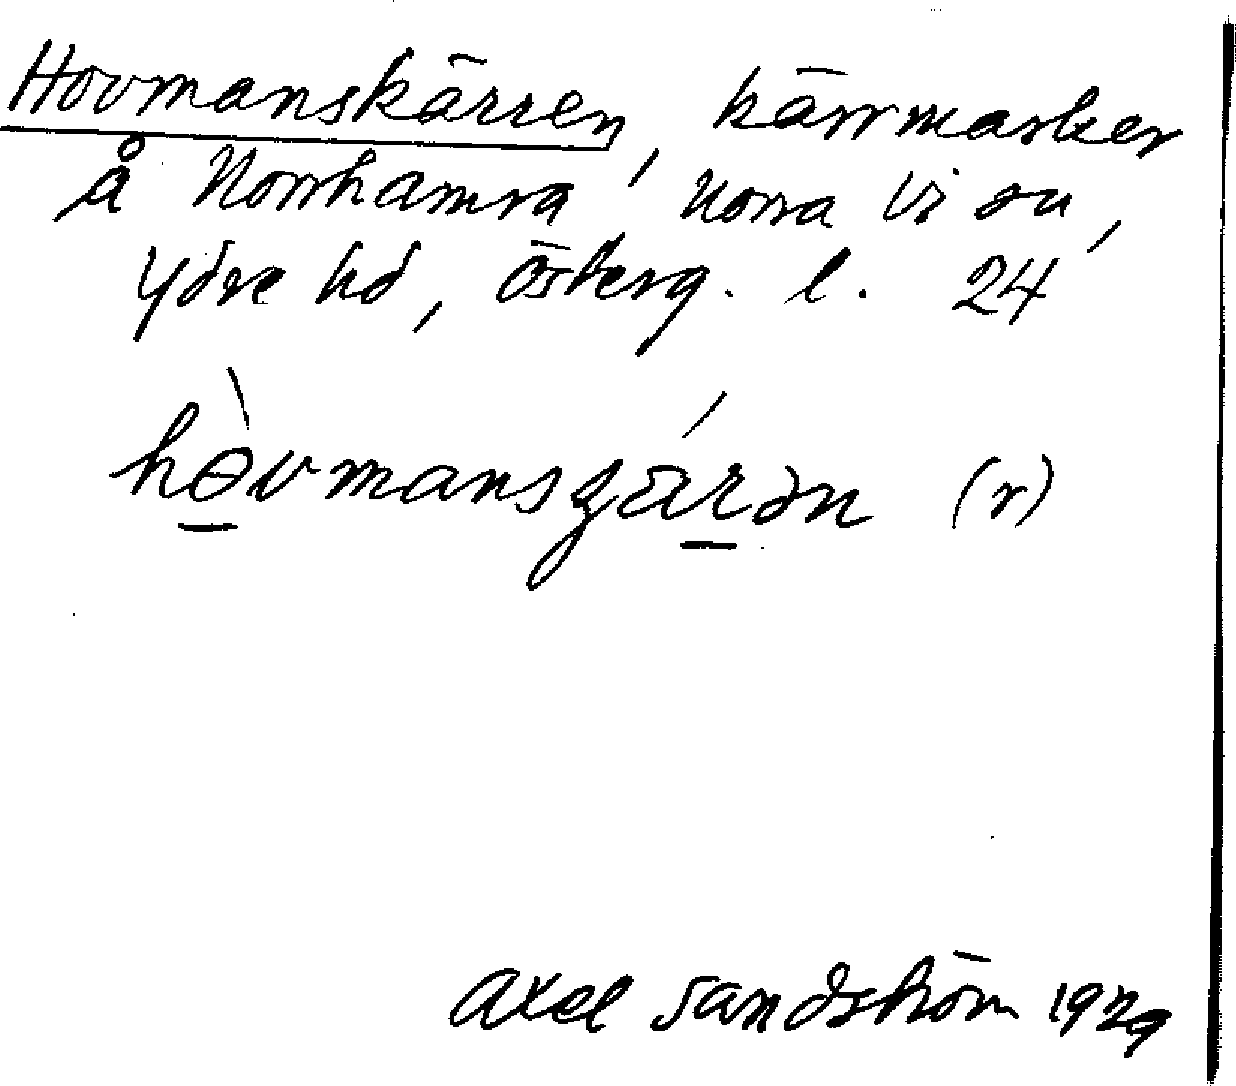 Hovmanskärren, kärrmarker
å Norrhamra, Norra Vi sn,
Ydre hd, Österg. l. 24
hɵ̀vmansɡárən (r)
Axel Sandström 1929